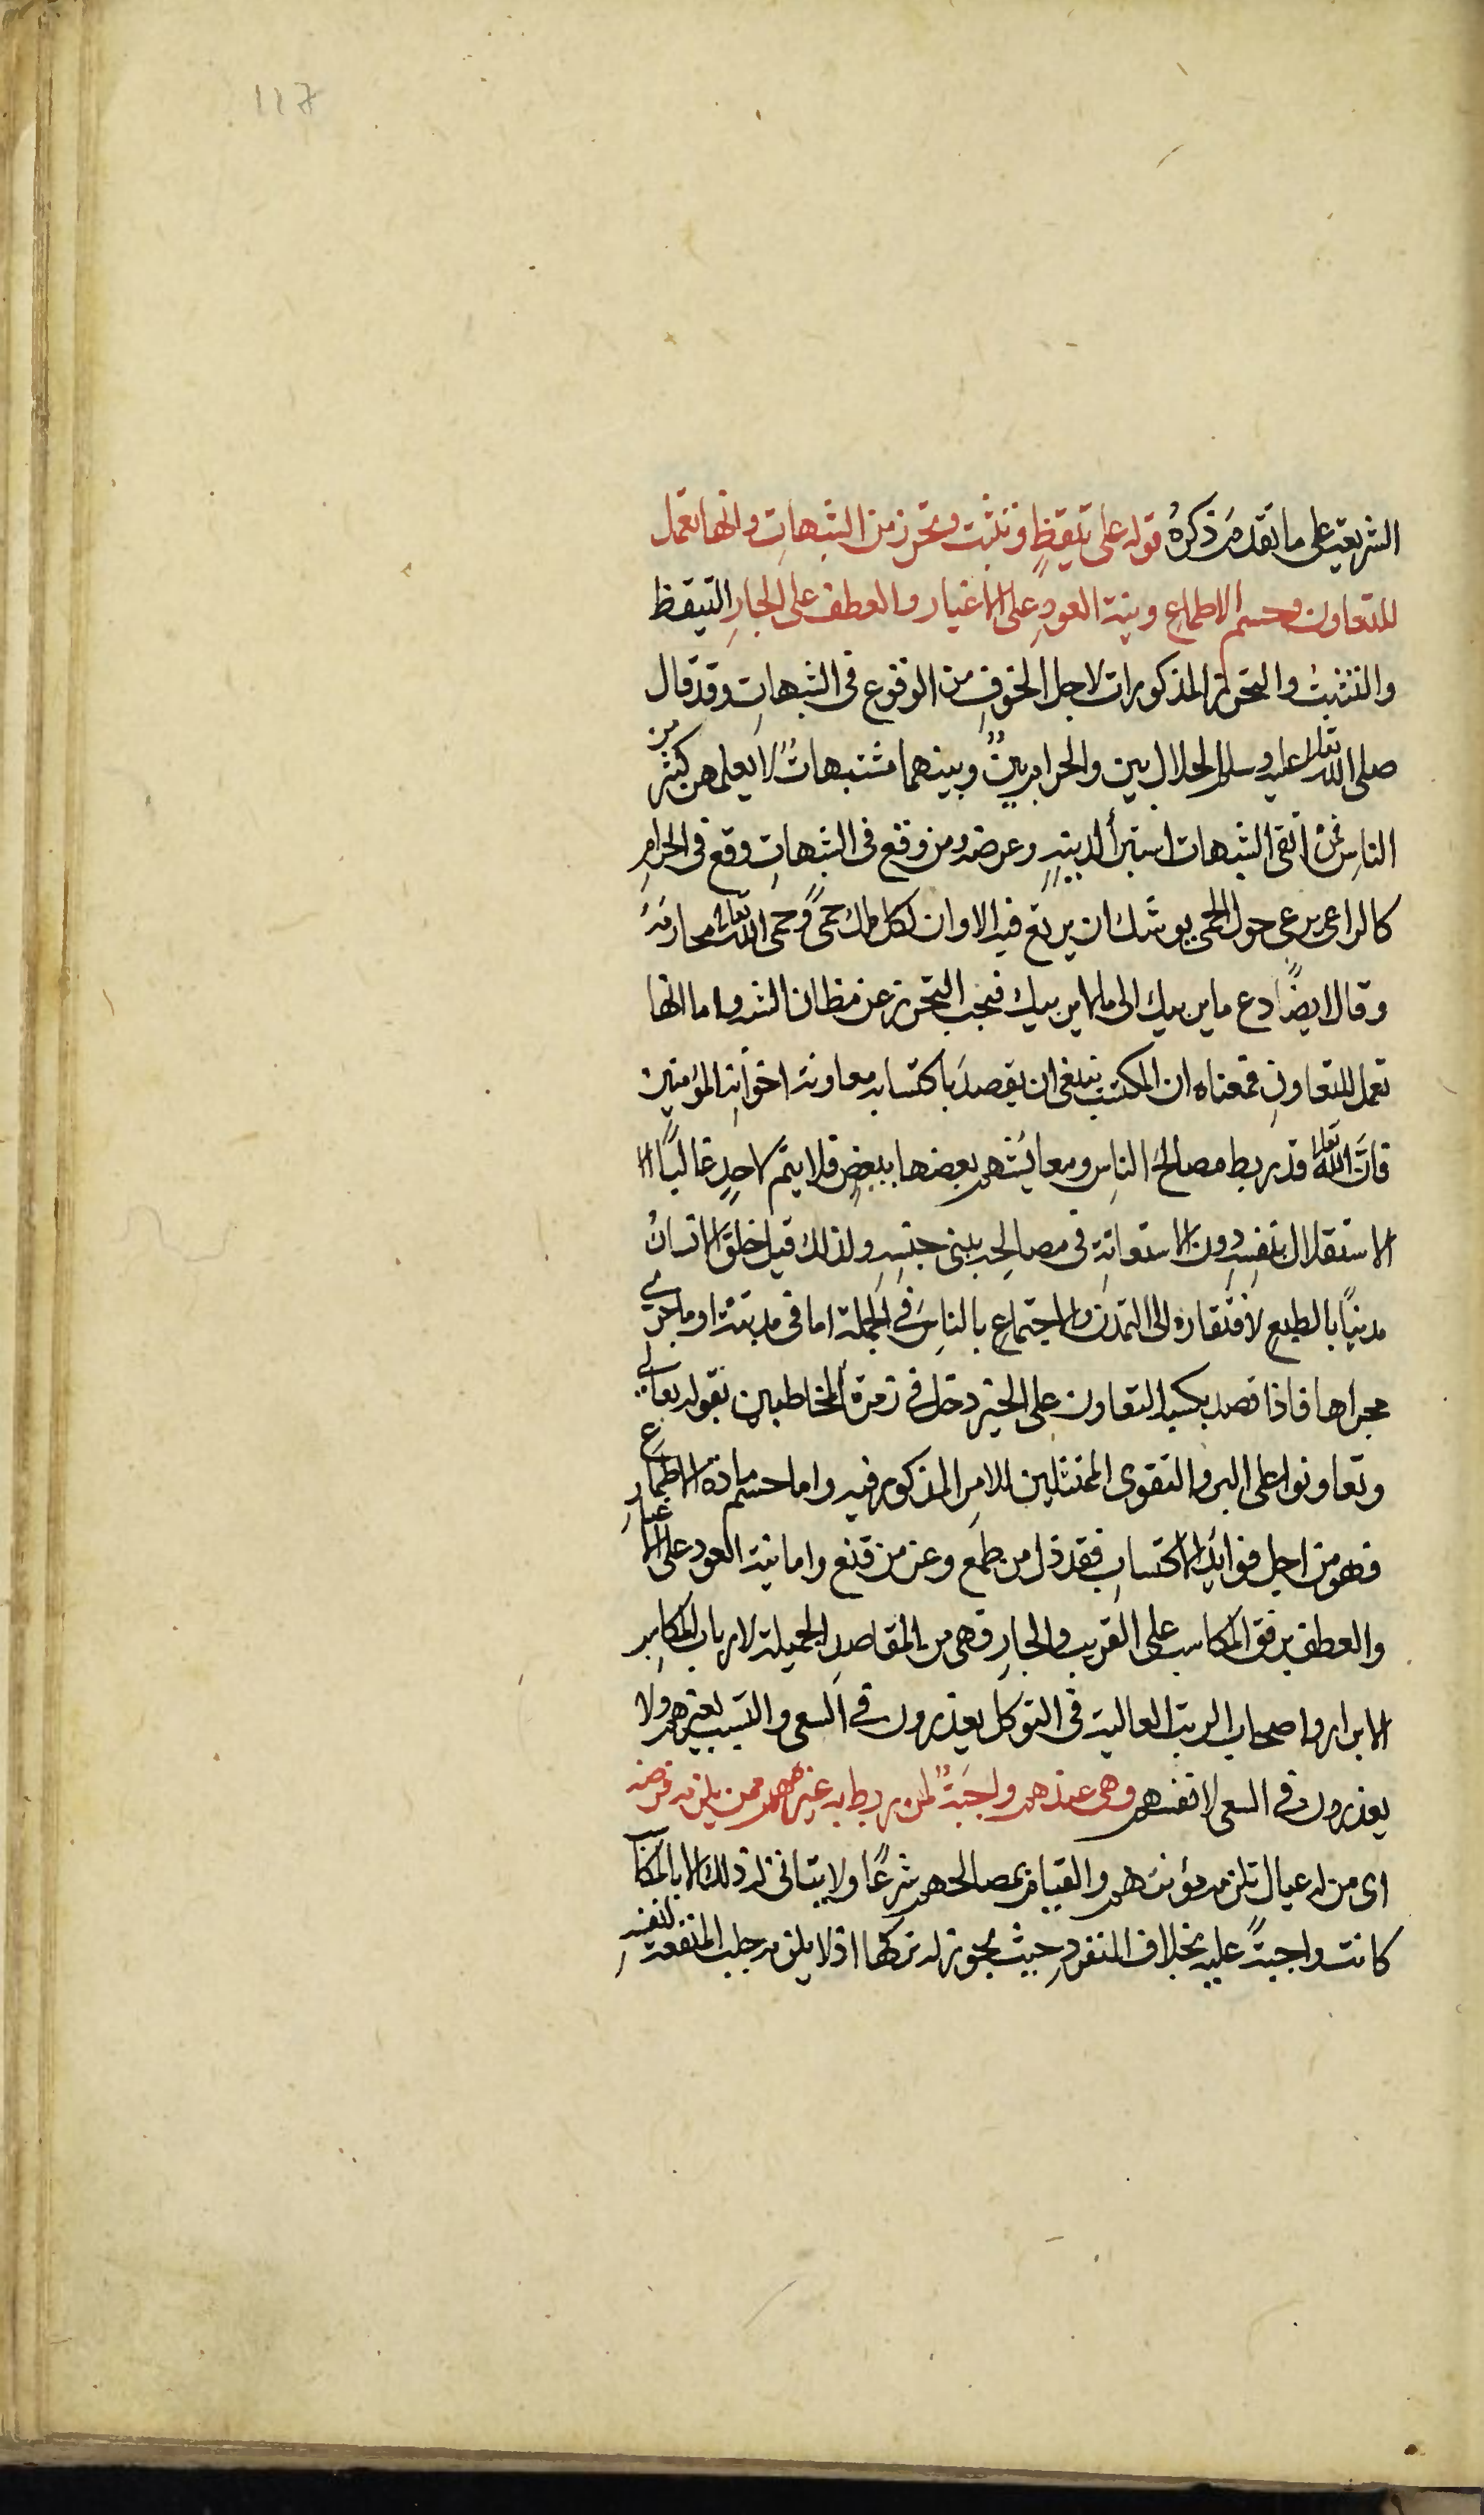 117
الشريعة على ما تقدم ذكرهُ قوله على تيقظٍ وتثبت وتحرز من الشبهاتِ وانها تعمل
للتعاون وحسم الاطماعِ ونية العودِ على الاغيار والعطف على الجارِ التيقظ
والتثبت والتحرز المذكورات لاجل الخوفِ من الوقوع فى الشبهاتِ وقد قال
صلى الله تعالى عليه وسلم الحلال بين والحرام بينٌ وبينهما مشتبهاتٌ لا يعلمهن كثير من
الناسِ فمن اتقى الشبهات استبرأ لدينهِ وعرضه ومن وقع فى الشبهاتِ وقع فى الحرامِ
كالراعى يرعى حول الحمى يوشك ان يرتع فيه الا وان لكل ملك حمىً وحمى الله تعالى محارمهُ
وقال ايضًا دع ما يريبك الى ما لا يريبك فيجب التحرز عن مظان الشر واما انها
تعمل للتعاونِ فمعناه ان المكتسب ينبغى ان يقصد باكتسابه معاونة اخوانهِ المؤمنين
فانَّ الله تعالى قد ربط مصالحَ الناسِ ومعايشهم بعضها ببعضٍ فلا يتم لاحدٍ غالبًا الا
الاستقلال بنفسهِ دون الاستعانةِ فى مصالحهِ ببنى جنسهِ ولذلك قيل خلق الانسانُ
مدنيًا بالطبعِ لافتقاره الى التمدن والاجتماعِ بالناسِ فى الجملة اما فى مدينة او ما جرى
مجراها فاذا قصد بكسبه التعاون على الخير دخل فى زمرة المخاطبين بقوله تعالى
وتعاونوا على البر والتقوى الممتثلين للامرِ المذكور فيه واما حسم مادة الاطماع
فهو من اجل فوائد الاكتسابِ فقد ذل من طمع وعز من قنع واما نية العود على الاغيارِ
والعطف برفق المكاسب على القريب والجارِ فهى من المقاصدِ الجميلة لارباب المكاسب
الابرار واصحاب الرتب العالية فى التوكل يعذرون فى السعى والتسبب لغيرهم ولا
يعذرون فى السعى لانفسهم وهى عندهم واجبَةٌ لمن ربط به غيرهم ممن يلزمه فرضه
اى من له عيال تلزمه مؤنتهم والقيام بمصالحهم شرعًا ولا يتأتى له ذلك الا بالمكاسب
كانت واجبةً عليه بخلاف المنفردِ حيث يجوز له تركها اذ لا يلزمه جلب المنفعة لنفسهِ